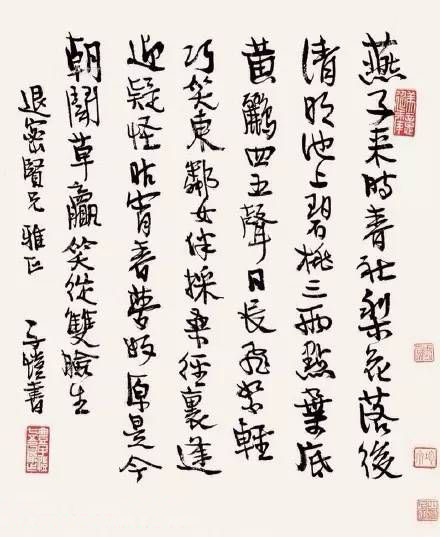 燕子来時春社梨花落後
清明池上碧桃三兩點葉底
黄鸝四五聲日長飛絮輕
巧笑東鄰女伴採桑徑裏逢
迎疑怪昨宵春夢好原是今
朝鬥草贏笑從雙臉生
退密賢兄雅正 子愷書